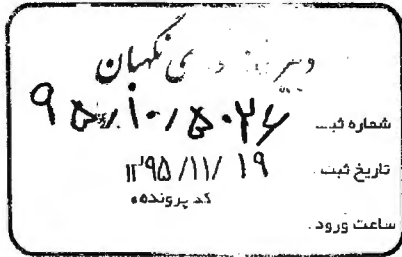 نگهبان
شماره ثبت ۹۵/۱۰/۵۰۲۶
تاریخ ثبت ۱۳۹۵/۱۱/۱۹
کد پرونده
ساعت ورود